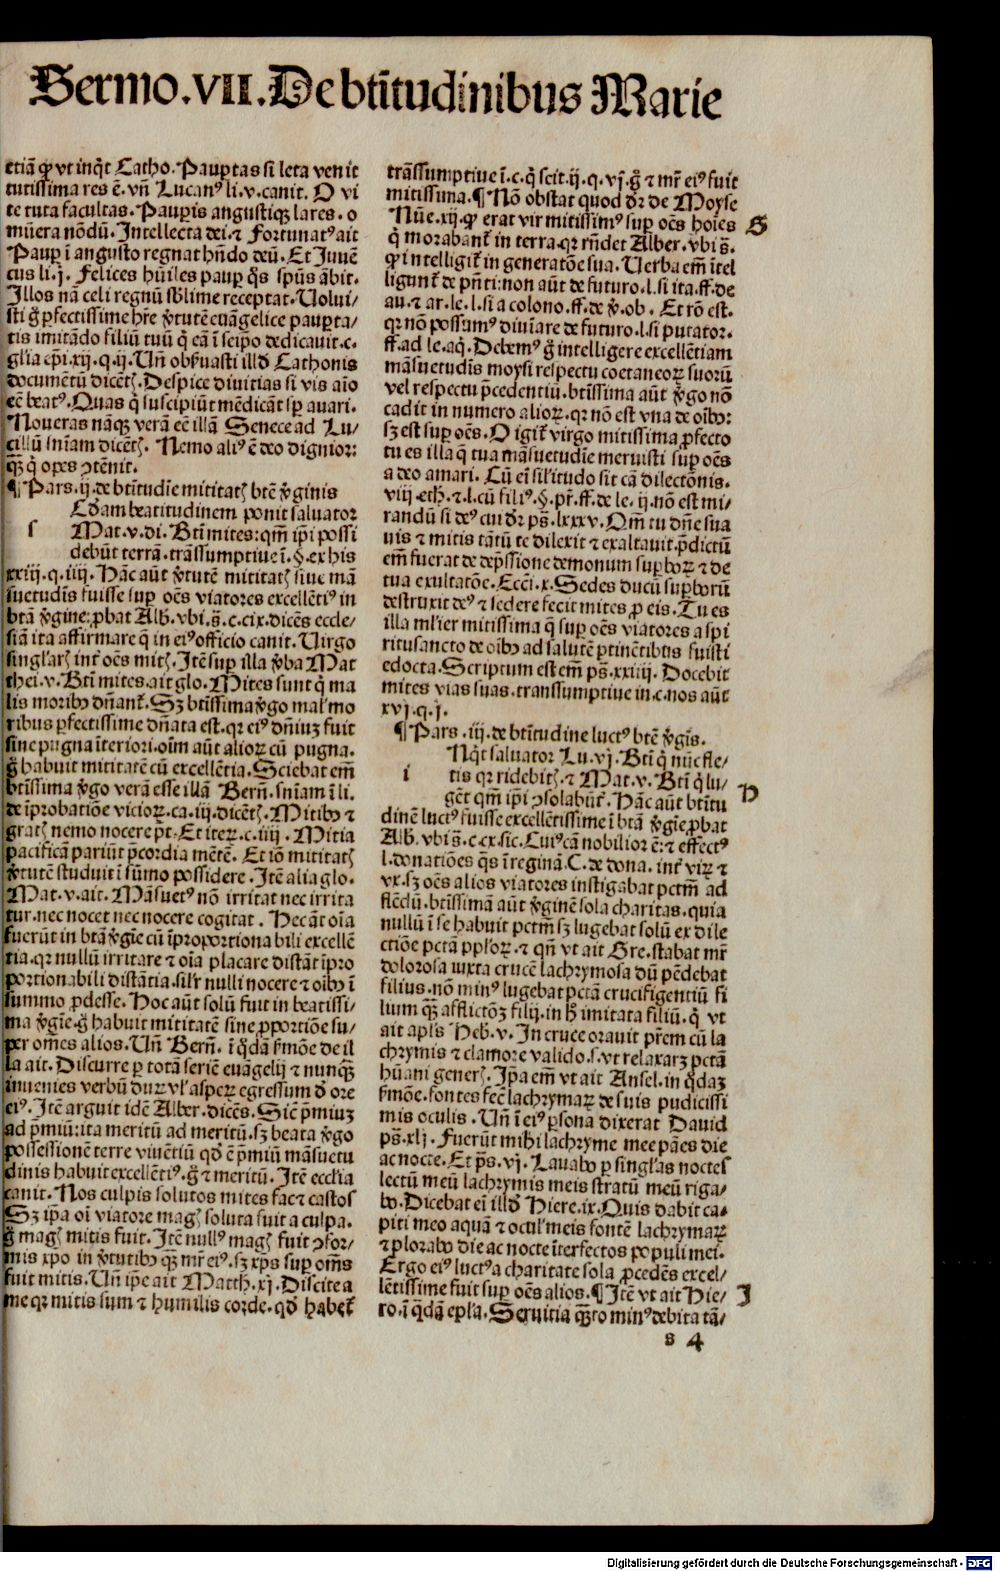 Sermo.VII.De btĩtudinibus Marie
etiã ꝙ vt inq̃t Catho. Paup̱tas si leta venit
tutissima res ẽ. vñ Lucanꝰ li. v. canit. O vi
te tuta facultas. Paup̱is angustiqꝫ lares. o
mũera nõdũ. Intellecta dei. ⁊ Fortunatꝰ ait
Paup̱ ĩ angusto regnat hñdo deũ. Et Juuẽ
cus li. j. Felices hũiles paup̱ q̃s spũs ãbit.
Illos nã celi regnũ sb̃lime receptat. Uolui/
sti g̃ ꝑfectissime hr̃e ꝟtutẽ euãgelice paup̱ta/
tis imitãdo filiũ tuũ q̃ eã ĩ seip̃o dedicauit. c.
gl̃ia ep̃i. xij. q. ij. Uñ obß̃uasti illð Cathonis
documẽtũ dicẽtꝭ. Despice diuitias si vis aĩo
eẽ beatꝰ. Quas q̃ suscipiũt mẽdicãt sp̱ auari.
Noueras nãqꝫ verã eẽ illã Senece ad Lu/
cillũ sñiam dicẽtꝭ. Nemo aliꝰ ẽ deo dignior:
qꝫ̃ q̃ opes ↄtẽnit.
¶ Pars. ij. de btĩtudĩe mititatꝭ btẽ ꝟginis
Ecðam beatitudinem ponit saluator
s Mat. v. di. Btĩ mites: qm̃ ip̃i possi
debũt terrã. trãssumptiue ĩ. §. ex his
xxiij. q. iiij. Hãc aũt ꝟtutẽ mititatꝭ siue mã
suetudĩs fuisse sup̱ oẽs viatores excellẽtiꝰ in
btã ꝟgine: ꝓbat Alb̃. vbi. s̃. c. cix. dicẽs eccle/
siã ita affirmare q̃ in eiꝰ officio canit. Uirgo
singl̃arꝭ int̃ oẽs mitꝭ. Itẽ sup̱ illa ꝟba Mat
thei. v. Btĩ mites. ait glo. Mites sunt q̃ ma
lis moribꝰ dñant̃. Sꝫ btĩssima ꝟgo mal̃ mo
ribus ꝑfectissime dñata est. qꝛ eiꝰ dñiuꝫ fuit
sine pugna ĩteriori. oĩm aũt alioꝝ cũ pugna.
g̃ habuit mititatẽ cũ excellẽtia. Sciebat em̃
btĩssima ꝟgo verã esse illã Berñ. sñiam ĩ li.
de ĩprobatiõe vicioꝝ. ca. iij. dicẽtꝭ. Mitibꝰ ⁊
gratꝭ nemo nocere põt. Et iteꝝ. c. iiij. Mitia
pacificã pariũt p̃cordia mẽtẽ. Et iõ mititatꝭ
ꝟtutẽ studuit ĩ sũmo possidere. Itẽ alia glo.
Mat. v. ait. Mãsuetꝰ nõ irritat nec irrita
tur. nec nocet nec nocere cogitat. Hec ãt oĩa
fuerũt in btã ꝟgĩe cũ ĩproportionabili excellẽ
tia. qꝛ nullũ irritare ⁊ oĩa placare distãt ĩpro
portionabili distãtia. sil̃r nulli nocere ⁊ oĩbꝰ ĩ
summo ꝓdesse. Hoc aũt solũ fuit in beatissi/
ma ꝟgĩe. g̃ habuit mititatẽ sine ꝓportiõe su/
per oẽs alios. Uñ Berñ. ĩ q̃dã ẜmõe de il
la ait. Discurre ꝑ totã seriẽ euãgelij ⁊ nunqꝫ̃
inuenies verbũ duꝝ vl̃ aspeꝝ egressum ð ore
eiꝰ. Itẽ arguit idẽ Alber. dicẽs. Sic p̃miuꝫ
ad p̃miũ: ita meritũ ad meritũ. sꝫ beata ꝟgo
possessionẽ terre viuẽtiũ qð ẽ p̃miũ mãsuetu
dinis habuit excellẽtiꝰ. g̃ ⁊ meritũ. Itẽ eccl̃ia
canit. Nos culpis solutos mites fac ⁊ castos
Sꝫ ip̃a oĩ viatore magꝭ soluta fuit a culpa.
g̃ magꝭ mitis fuit. Itẽ nullꝰ magꝭ fuit ↄfor/
mis xp̃o in ꝟtutibꝰ qꝫ̃ mr̃ eiꝰ. sꝫ xp̃s sup̱ oẽs
fuit mitis. Uñ ip̃e ait Matth. xj. Discite a
me qꝛ mitis sum ⁊ humilis corde. qð habet̃
trãssumptiue ĩ. c. q̃ scit. ij. q. vj. g̃ ⁊ mr̃ eiꝰ fuit
mitissima. ¶ Nõ obstat quod dr̃ de Moyse
Nũe. xij. ꝙ erat vir mitissimꝰ sup̱ oẽs hoĩes S
q̃ morabant̃ in terra. qꝛ rñdet Alber. vbi. s̃.
ꝙ intelligit̃ in generatõe sua. Uerba em̃ ĩtel
ligunt̃ de pñti: non aũt de futuro. l. si ita. ff. de
au. ⁊ ar. le. l. si a colono. ff. de ꝟ. ob. Et rõ est.
qꝛ nõ possumꝰ diuĩare de futuro. l. si putator.
ff. ad le. aq̃. Debemꝰ g̃ intelligere excellẽtiam
mãsuetudĩs moysi respectu coetaneoꝝ suorũ
vel respectu p̃cedentiũ. btĩssima aũt ꝟgo nõ
cadit in numero alioꝝ. qꝛ nõ est vna de oĩbꝰ:
sꝫ est sup̱ oẽs. O igit̃ virgo mitissima ꝓfecto
tu es illa q̃ tua mãsuetudĩe meruisti sup̱ oẽs
a deo amari. Cũ eĩ sil̃itudo sit cã dilectõnis.
viij. etꝭ. ⁊ l. cũ filiꝰ. §. pr̃. ff. de le. ij. nõ est mi/
randũ si deꝰ cui dr̃ pš. lxxxv. Qm̃ tu dñe sua
uis ⁊ mitis tãtũ te dilexit ⁊ exaltauit. p̃dictũ
em̃ fuerat de dep̃ssione demonum sup̱boꝝ ⁊ de
tua exultatõe. Ecc̃i. x. Sedes ducũ sup̱borũ
destruxit deꝰ ⁊ sedere fecit mites ꝓ eis. Tu es
illa ml̃ier mitissima q̃ sup̱ oẽs viatores a spi
ritusancto de oĩbꝰ ad salutẽ ꝑtinẽtibus fuisti
edocta. Scriptum est em̃ pš. xxiiij. Docebit
mites vias suas. transsumptiue in. c. nos aũt
xvj. q. j.
¶ Pars. iij. de btĩtudine luctꝰ btẽ ꝟgĩs.
Nq̃t saluator Lu. vj. Btĩ q̃ nũc fle/
i tis qꝛ ridebitꝭ. ⁊ Mat. v. Btĩ q̃ lu/ H
gẽt qm̃ ip̃i ↄsolabũt̃. Hãc aũt btĩtu
dinẽ luctꝰ fuisse excellẽtissime ĩ btã ꝟgĩe ꝓbat
Alb̃. vbi. s̃. c. cx. sic. Cuiꝰ cã nobilior ẽ: ⁊ effectꝰ
l. donatiões q̃s ĩ reginã. C. de dona. int̃ viꝝ ⁊
vx. sꝫ oẽs alios viatores instigabat pctm̃ ad
flẽdũ. btĩssimã aũt ꝟginẽ sola charitas. quia
nullũ ĩ se habuit pctm̃ sꝫ lugebat solũ ex dile
ctiõe pctã pp̃loꝝ. ⁊ qñ vt ait Gre. stabat mr̃
dolorosa iuxta crucẽ lachrymosa dũ pẽdebat
filius. nõ minꝰ lugebat pctã crucifigentiũ fi
lium qꝫ̃ afflictõꝫ filij. in hͦ imitata filiũ. q̃ vt
ait apl̃s Heb̃. v. In cruce orauit pr̃em cũ la
chrymis ⁊ clamore valido. s. vt relaxarꝫ pctã
hũani generꝭ. Ip̃a em̃ vt ait Ansel. in q̃daꝫ
ẜmõe. fontes fec̃ lachrymaꝝ de suis pudicissi
mis oculis. Uñ ĩ eiꝰ ꝑsona dixerat Dauid
pš. xlj. Fuerũt mihi lachryme mee pães die
ac nocte. Et pš. vj. Lauabo ꝑ singl̃as noctes
lectũ meũ lachrymis meis stratũ meũ riga/
bo. Dicebat eĩ illð Hiere. ix. Quis dabit ca/
piti meo aquã ⁊ ocul̃ meis fontẽ lachrymaꝝ
⁊ plorabo die ac nocte ĩterfectos populi mei.
Ergo eiꝰ luctꝰ a charitate sola ꝓcedẽs excel/
lẽtissime fuit sup̱ oẽs alios. ¶ Itẽ vt ait Hie/ J
ro. ĩ q̃dã ep̃la. Seruitia qꝫ̃to minꝰ debita tã/
s 4
Digitalisierung gefördert durch die Deutsche Forschungsgemeinschaft - DFG